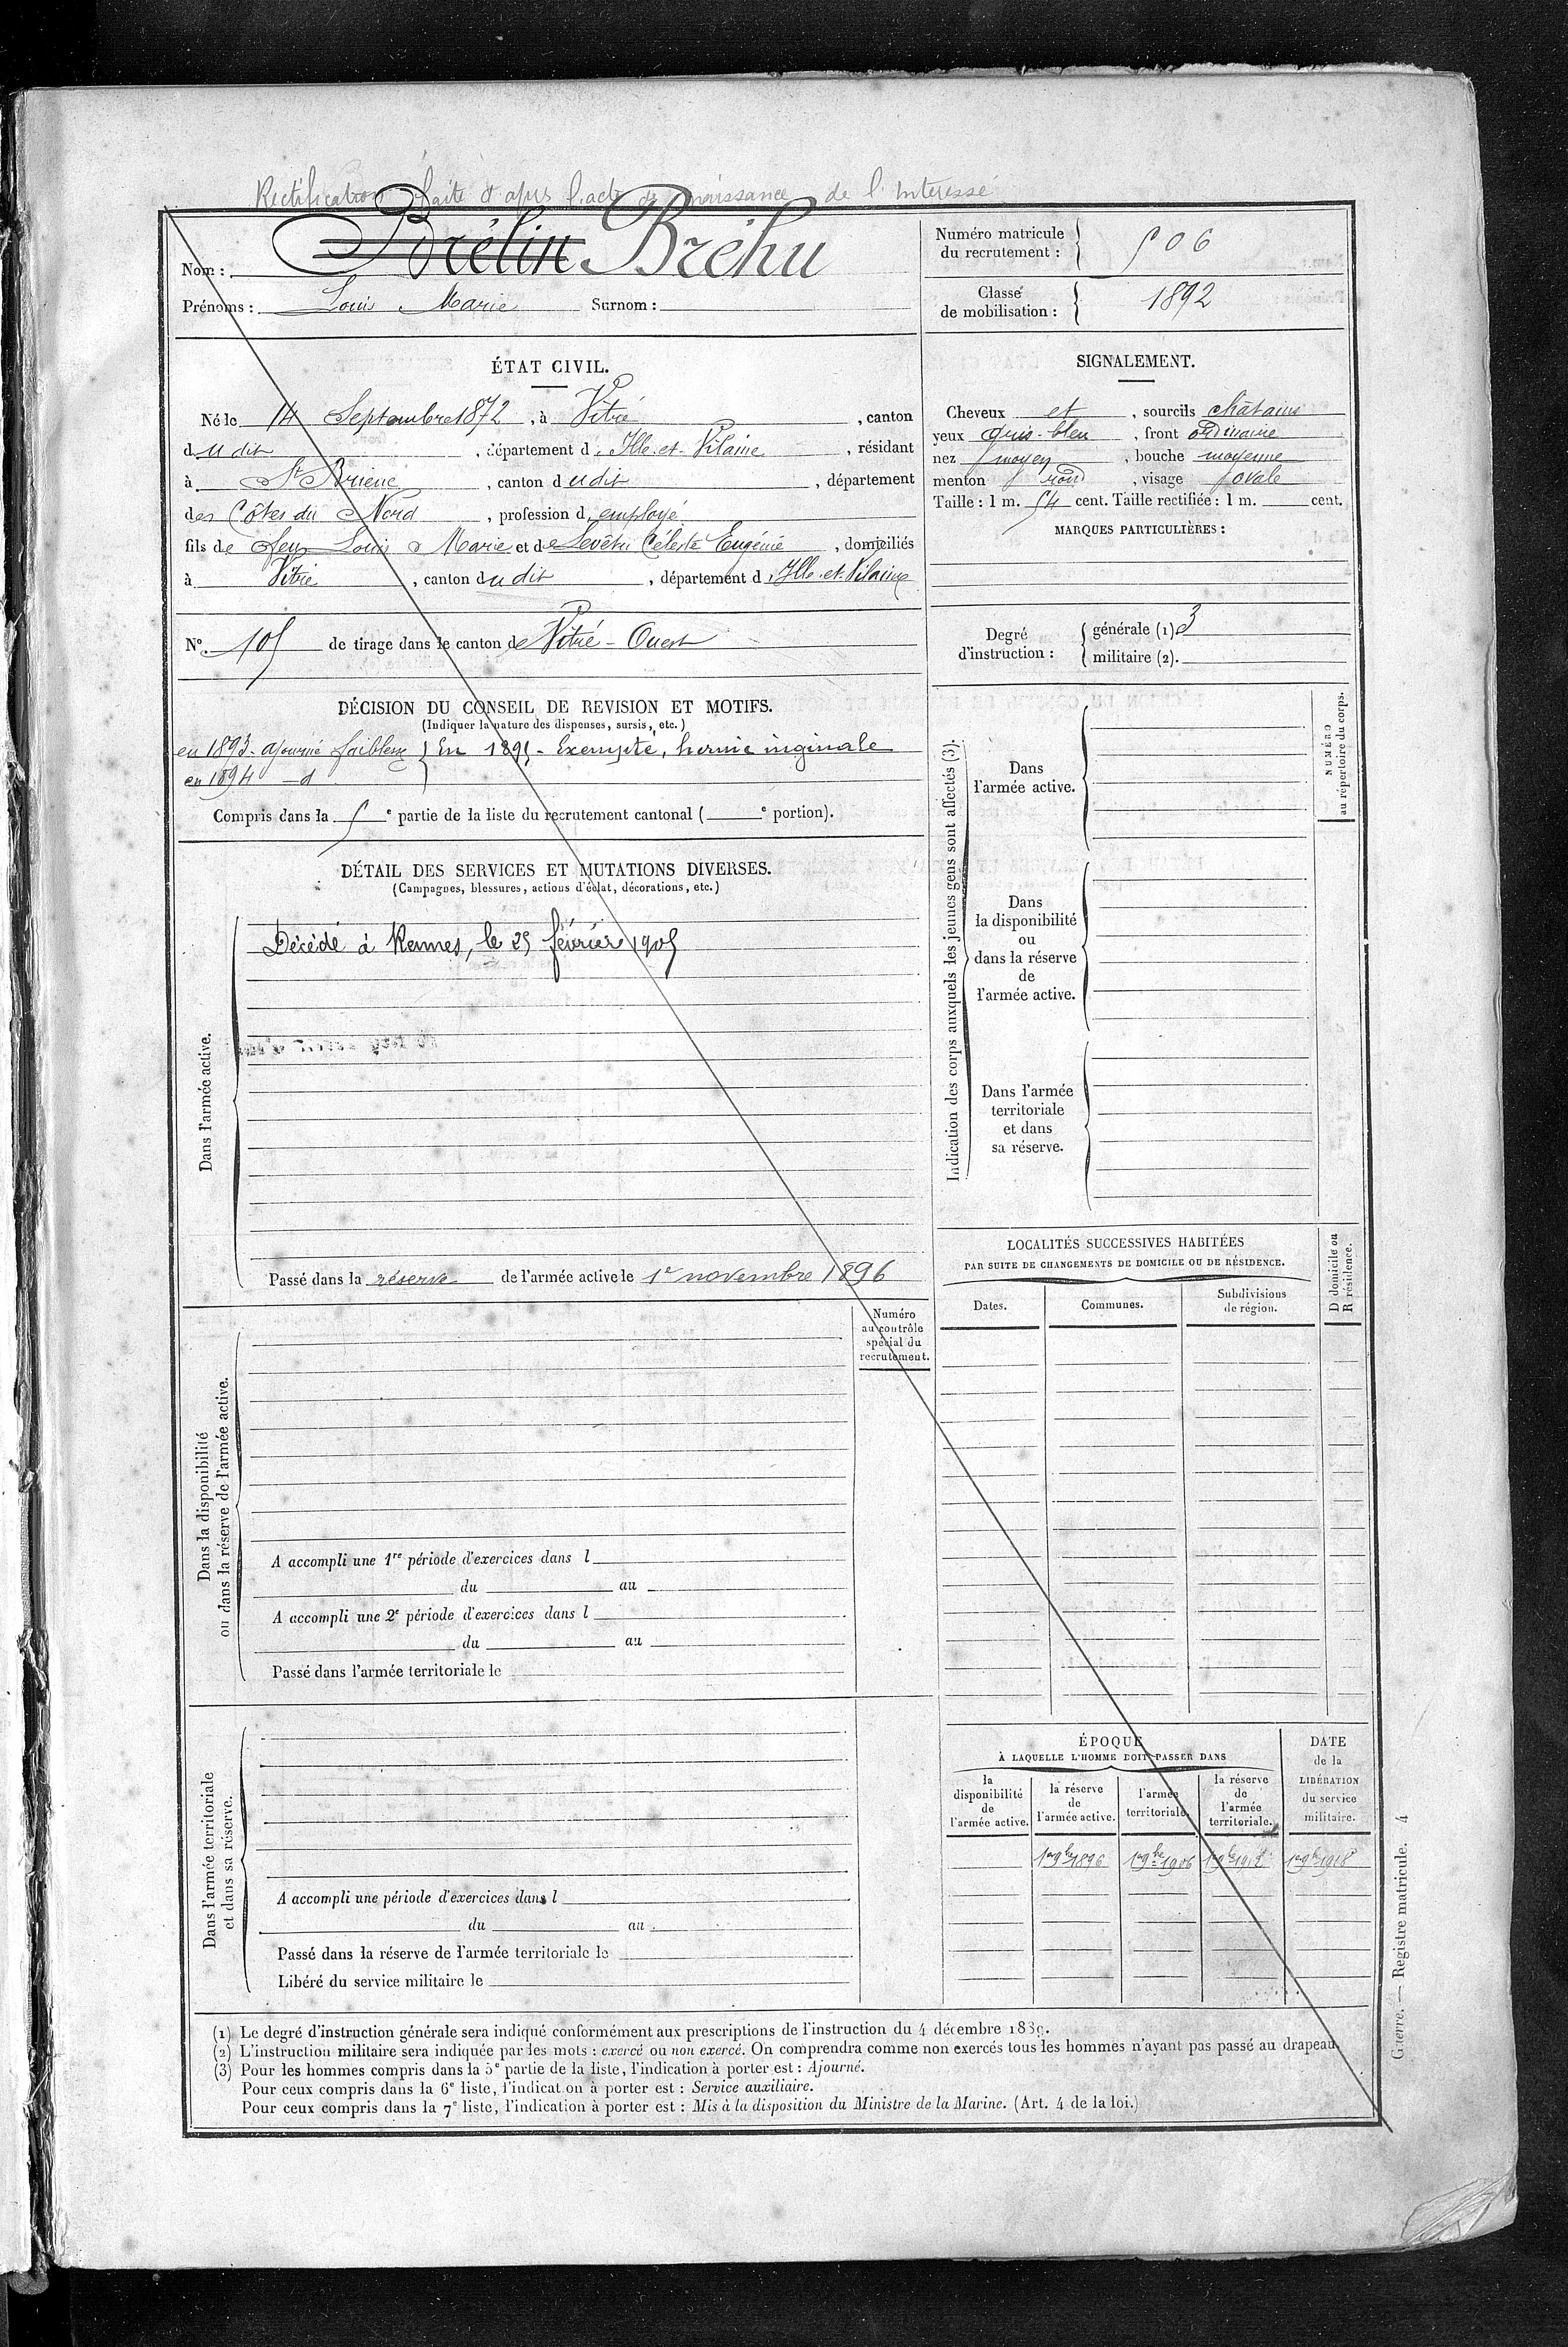 Rectification faite d'après l'acte de naissance de l'Intéressé
Nom : Brélin Bréhu
Prénoms : Louis Marie Surnom :
Numéro matricule du recrutement : 506
Classe de mobilisation : 1892
ÉTAT CIVIL.
Né le 14 Septembre 1872, à Vitré, canton
dudit, département d'Ille-et-Vilaine, résidant
à St Brieuc, canton dudit, département
des Côtes du Nord, profession d'employé
fils de feu Louis Marie et de Levêtu Céleste Eugénie, domiciliés
à Vitré, canton dudit, département d'Ille-et-Vilaine
SIGNALEMENT.
Cheveux et, sourcils châtains
yeux gris-bleu, front ordinaire
nez moyen, bouche moyenne
menton rond, visage ovale
Taille : 1 m. 54 cent. Taille rectifiée : 1 m. cent.
MARQUES PARTICULIÈRES :
N° 105 de tirage dans le canton de Vitré-Ouest
Degré d'instruction :
générale (1) 3
militaire (2).
DÉCISION DU CONSEIL DE REVISION ET MOTIFS.
(Indiquer la nature des dispenses, sursis, etc.)
en 1893. ajourné faiblesse } En 1895 - Exempté, hernie inginale
en 1894 - d
Compris dans la 5e partie de la liste du recrutement cantonal ( e portion).
DÉTAIL DES SERVICES ET MUTATIONS DIVERSES.
(Campagnes, blessures, actions d'éclat, décorations, etc.)
Dans l'armée active.
Décédé à Rennes, le 25 février 1905
Passé dans la réserve de l'armée active le 1er novembre 1896
Indication des corps auxquels les jeunes gens sont affectés (3).
NUMÉRO au répertoire du corps.
Dans
l'armée active.
Dans
la disponibilité
ou
dans la réserve
de
l'armée active.
Dans l'armée
territoriale
et dans
sa réserve.
Numéro
au contrôle
spécial du
recrutement.
Dans la disponibilité
ou dans la réserve de l'armée active.
A accompli une 1re période d'exercices dans l
du au
A accompli une 2e période d'exercices dans l
du au
Passé dans l'armée territoriale le
LOCALITÉS SUCCESSIVES HABITÉES
PAR SUITE DE CHANGEMENTS DE DOMICILE OU DE RÉSIDENCE.
Dates. Communes. Subdivisions de région. D domicile ou R résidence.
Dans l'armée territoriale
et dans sa réserve.
A accompli une période d'exercices dans l
du au
Passé dans la réserve de l'armée territoriale le
Libéré du service militaire le
ÉPOQUE
À LAQUELLE L'HOMME DOIT PASSER DANS
la disponibilité de l'armée active.
la réserve de l'armée active.
l'armée territoriale.
la réserve de l'armée territoriale.
DATE de la LIBÉRATION du service militaire.
1er 9bre 1896 1er 9bre 1906 1er 9bre 1912 1er 9bre 1918
(1) Le degré d'instruction générale sera indiqué conformément aux prescriptions de l'instruction du 4 décembre 1889.
(2) L'instruction militaire sera indiquée par les mots : exercé ou non exercé. On comprendra comme non exercés tous les hommes n'ayant pas passé au drapeau.
(3) Pour les hommes compris dans la 5e partie de la liste, l'indication à porter est : Ajourné.
Pour ceux compris dans la 6e liste, l'indication à porter est : Service auxiliaire.
Pour ceux compris dans la 7e liste, l'indication à porter est : Mis à la disposition du Ministre de la Marine. (Art. 4 de la loi.)
Guerre. — Registre matricule. 4